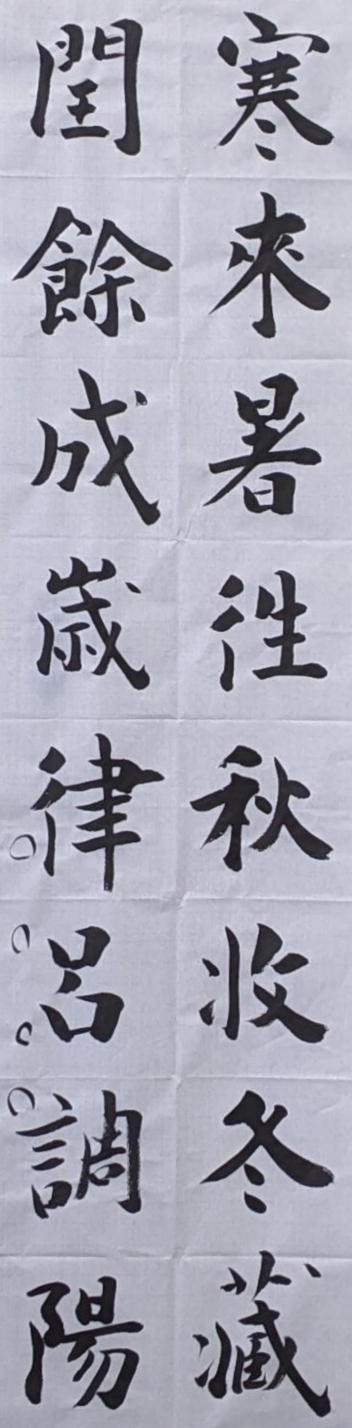 寒來暑往秋收冬藏
閏餘成歲律呂調陽